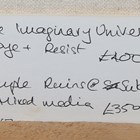 e Imaginary Univers
oye + Resist
£400
mple Ruins @ Sub
Mixed media £350